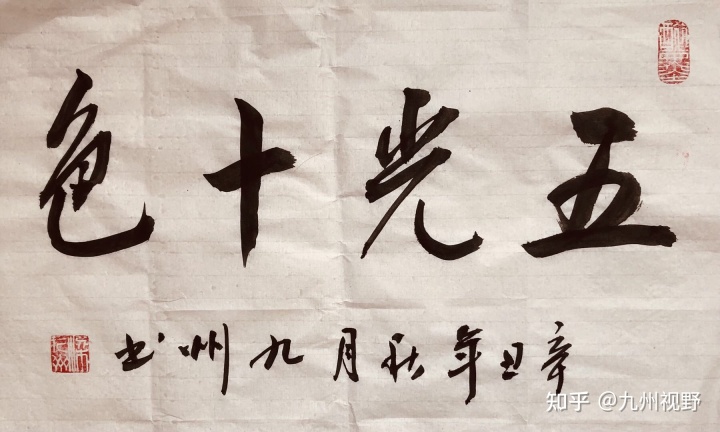 五光十色
辛丑年秋月九州书
知乎 @九州视野